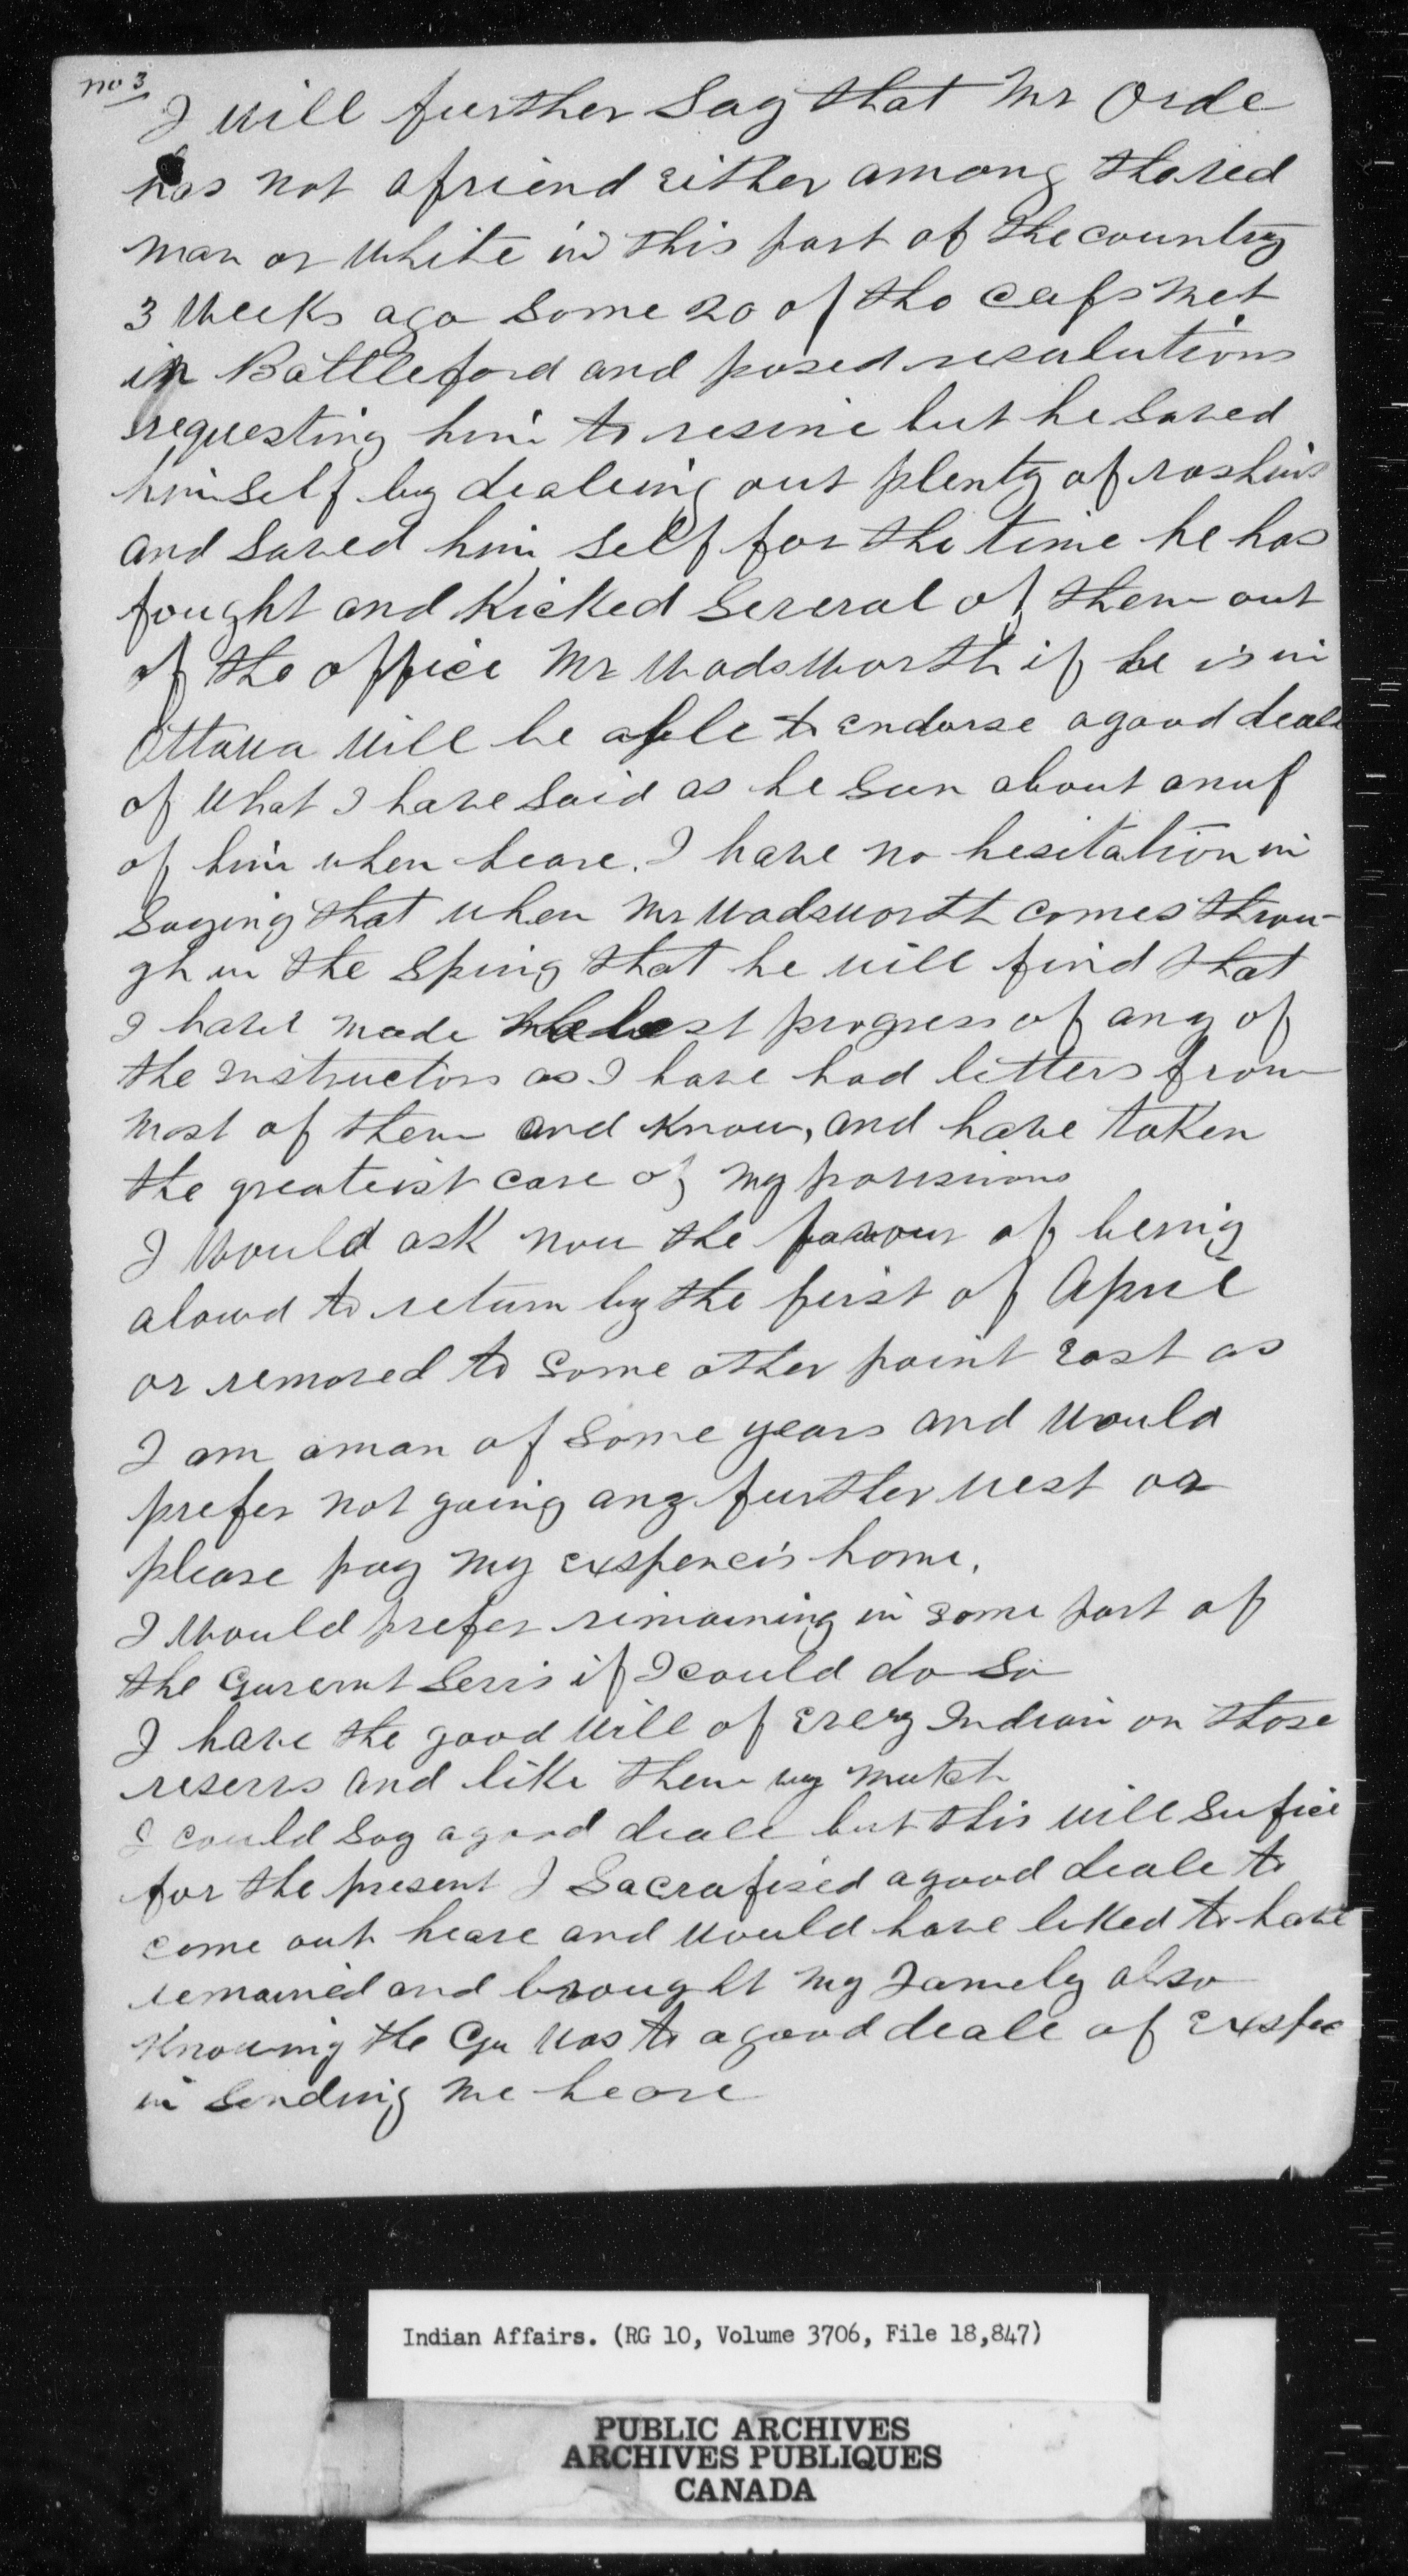 no 3
I will further Say that Mr Orde
has not a friend either among the red
man or white in this part of the country
3 weeks ago some 20 of the ceafs met
in Battleford and posed resalutions
requesting him to resine but he saved
himself by dealeing out plenty of rashins
and saved him self for the time he has
fought and Kicked several of them out
of the office Mr Wadsworth if he is in
Ottawa will be able to endorse a good deale
of what I have said as he seen about anuf
of him when heare. I have no hesitation in
saying that when Mr Wadsworth comes throu-
gh in the Sping that he will find that
I have made the best progress of any of
the instructors as I have had letters from
most of them and know, and have taken
the greateist care of my provisions
I would ask now the favour of being
alowd to return by the first of April
or removed to some other point east as
I am a man of some years and would
prefer not going any further west or
please pay my exspenceis home.
I would prefer remaining in some part of
the Guvernt Servis if I could do so
I have the good will of every Indian on those
reserves and like them my mutch
I could say a good deale but this will sufice
for the present I Sacrafised a good deale to
come out heare and would have liked to have
remained and brought my Famely also
knowing the Gu was to a good deale of exspee
in sending me heare
Indian Affairs. (RG 10, Volume 3706, File 18,847)
PUBLIC ARCHIVES
ARCHIVES PUBLIQUES
CANADA